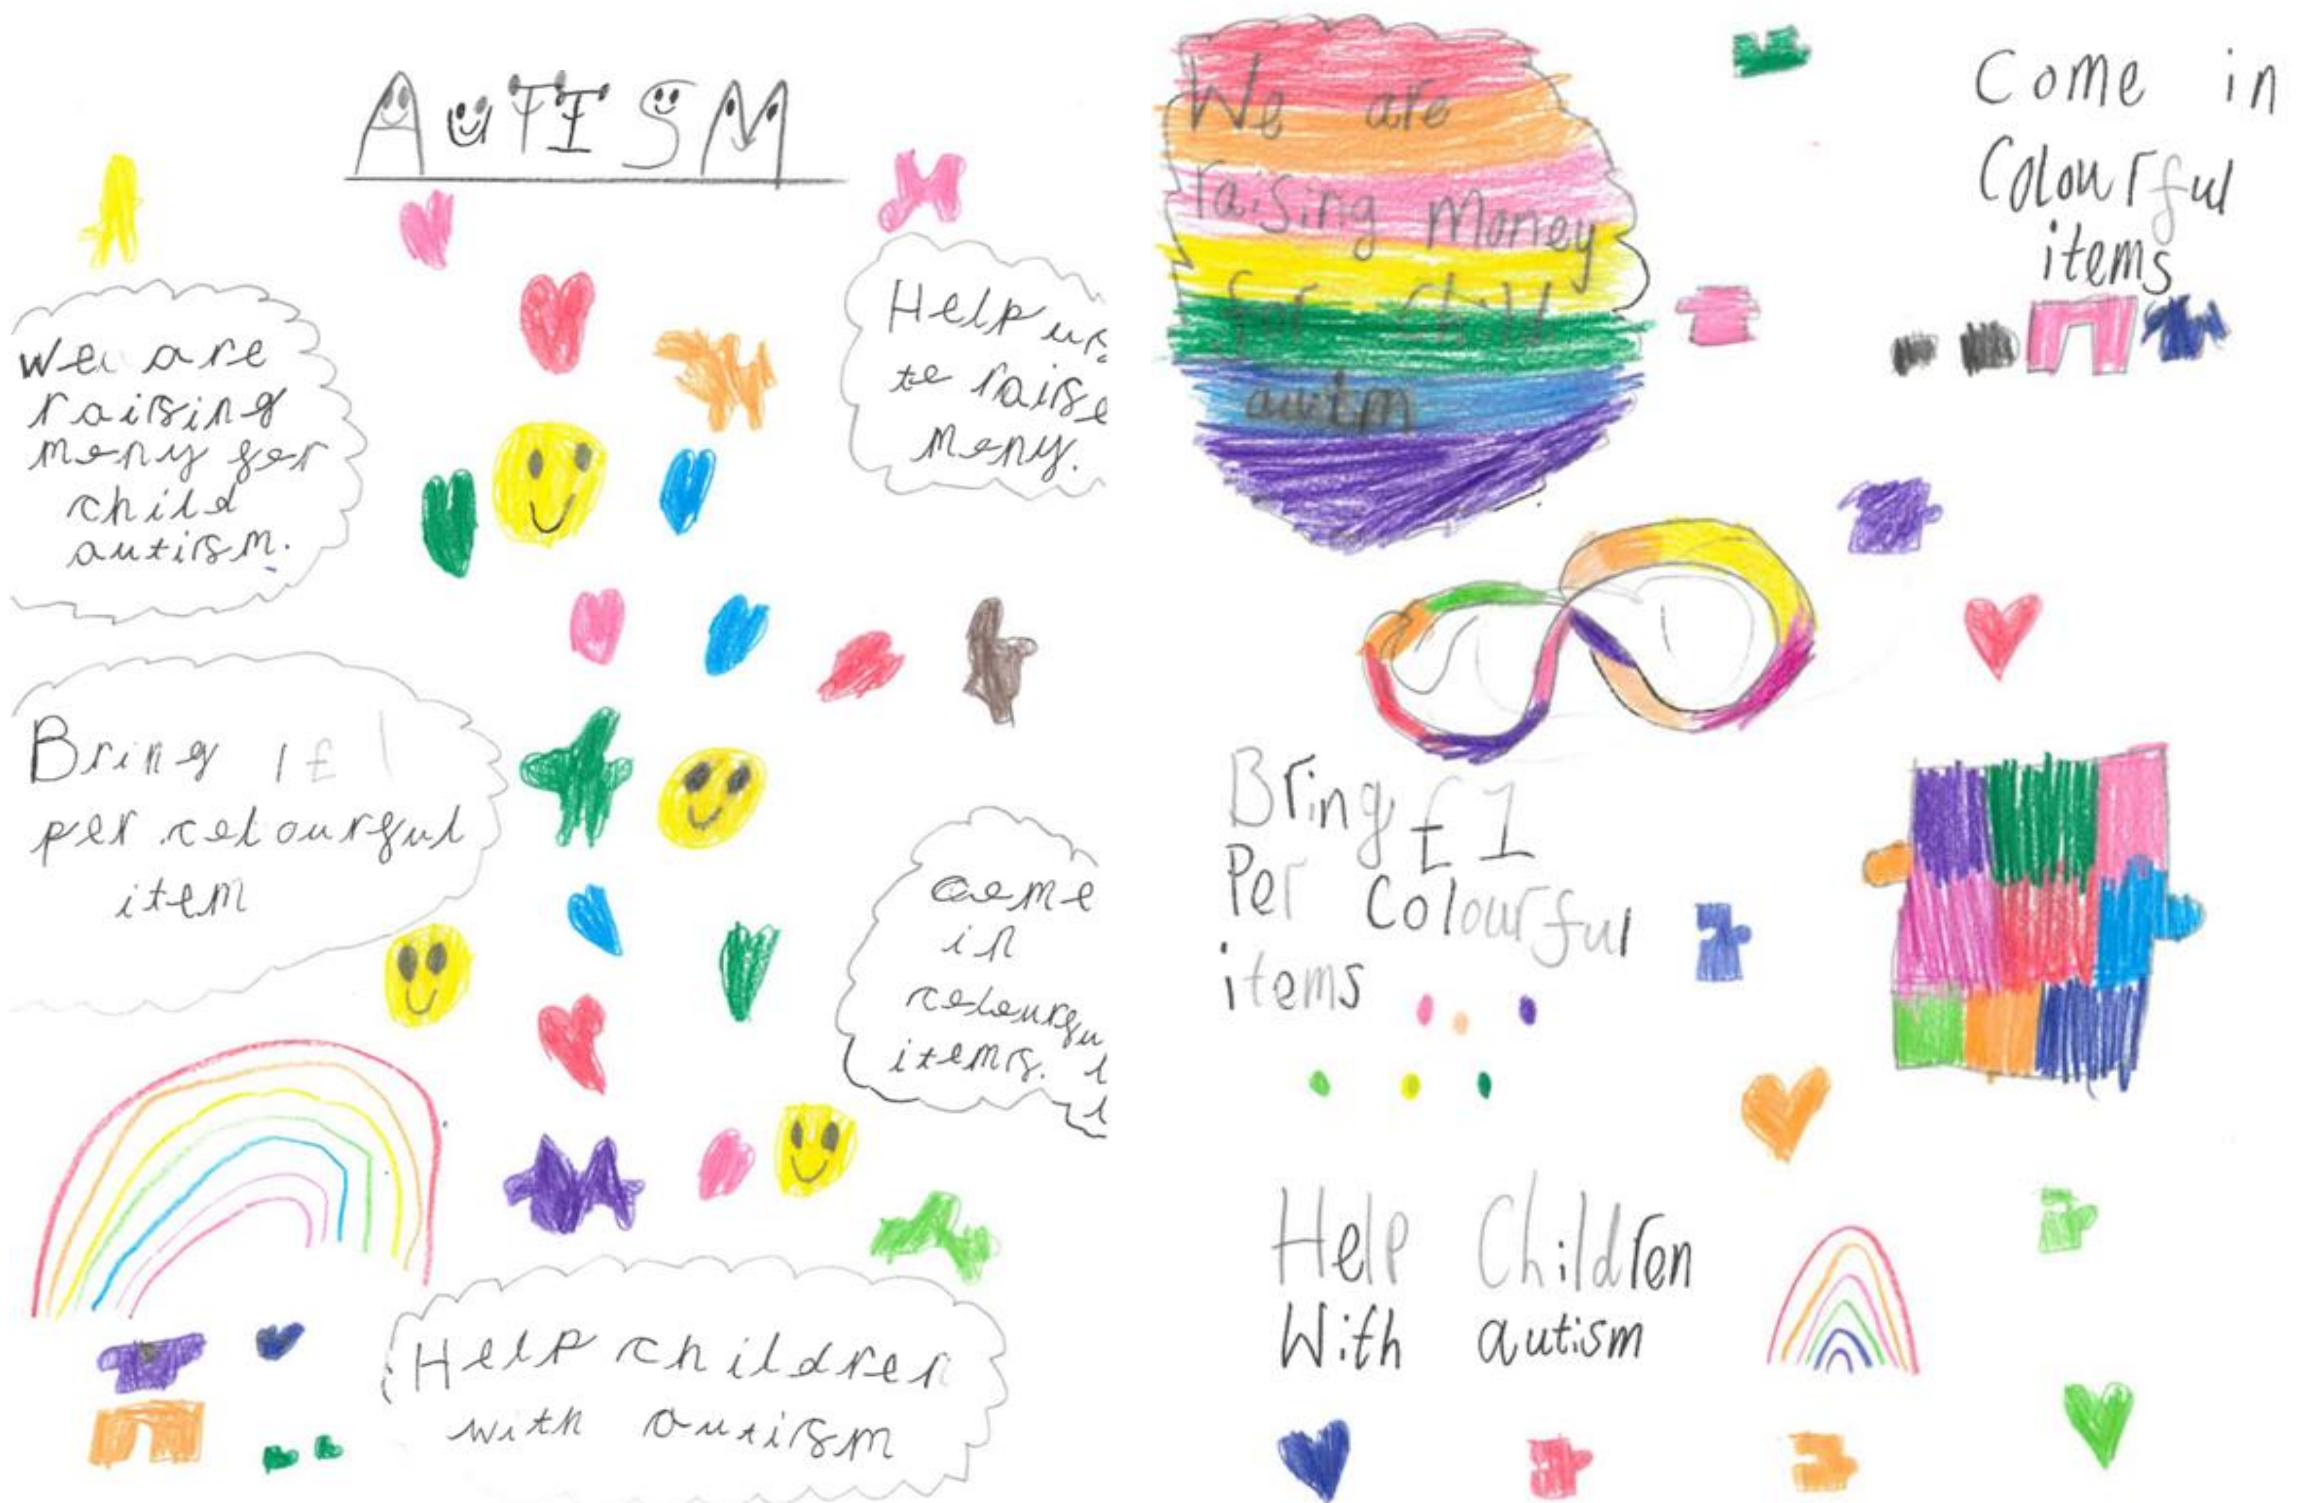 AUTISM
We are
raising
mony for
child
autism.
Help us
to raise
mony.
Bring 1£
per colourful
item
Come
in
colourfu
items.
Help children
with autism
We are
raising money
for child
autim
Come in
Colourful
items
Bring £1
Per Colourful
items
Help Children
With autism